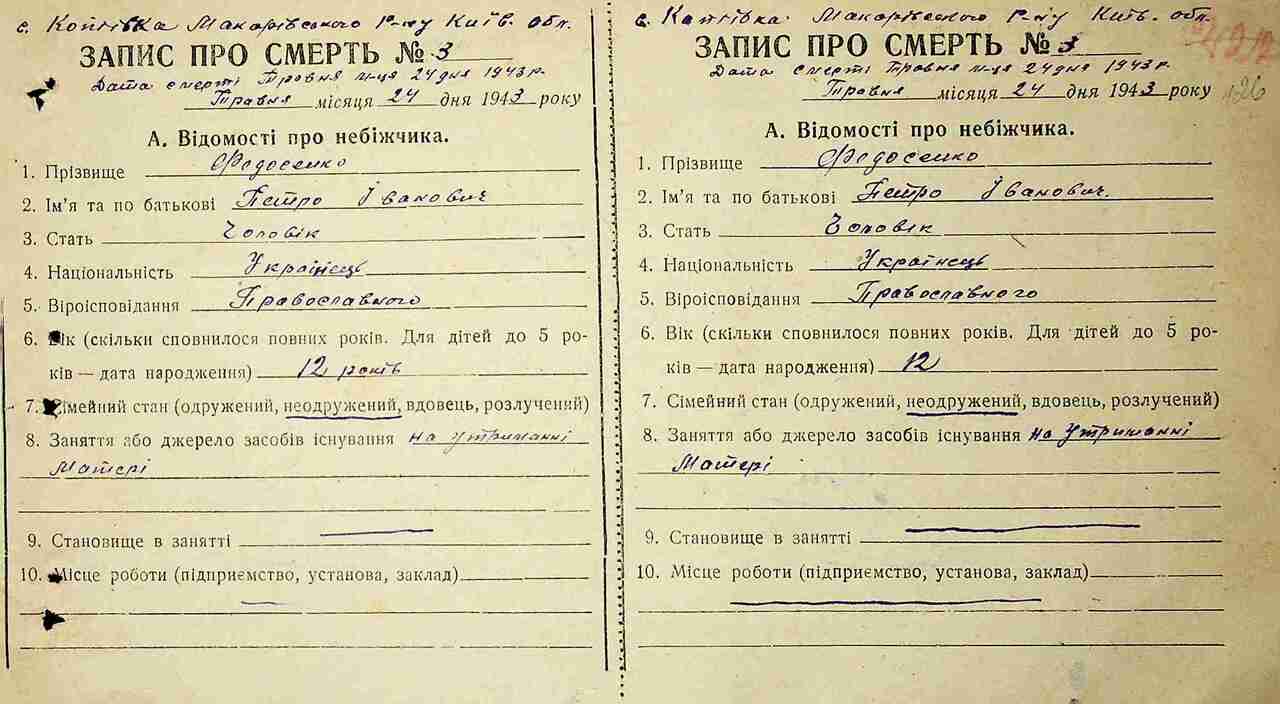 с. Копіївка Макарівського Р-ну Київ. обл.
ЗАПИС ПРО СМЕРТЬ № 3
Дата смерті Травня м-ця 24 дня 1943 р.
Травня місяця 24 дня 1943 року
А. Відомості про небіжчика.
1. Прізвище Федосенко
2. Ім'я та по батькові Петро Іванович
3. Стать Чоловік
4. Національність Українець
5. Віроісповідання Православного
6. Вік (скільки сповнилося повних років. Для дітей до 5 ро-
ків — дата народження) 12 років
7. Сімейний стан (одружений, неодружений, вдовець, розлучений)
8. Заняття або джерело засобів існування на утриманні
Матері
9. Становище в занятті
10. Місце роботи (підприємство, установа, заклад)
с. Копіївка Макарівського Р-ну Київ. обл.
ЗАПИС ПРО СМЕРТЬ № 3
Дата смерті Травня м-ця 24 дня 1943 р.
Травня місяця 24 дня 1943 року
126
А. Відомості про небіжчика.
1. Прізвище Федосенко
2. Ім'я та по батькові Петро Іванович.
3. Стать Чоловік
4. Національність Українець
5. Віроісповідання Православного
6. Вік (скільки сповнилося повних років. Для дітей до 5 ро-
ків — дата народження) 12
7. Сімейний стан (одружений, неодружений, вдовець, розлучений)
8. Заняття або джерело засобів існування на утриманні
Матері
9. Становище в занятті
10. Місце роботи (підприємство, установа, заклад)